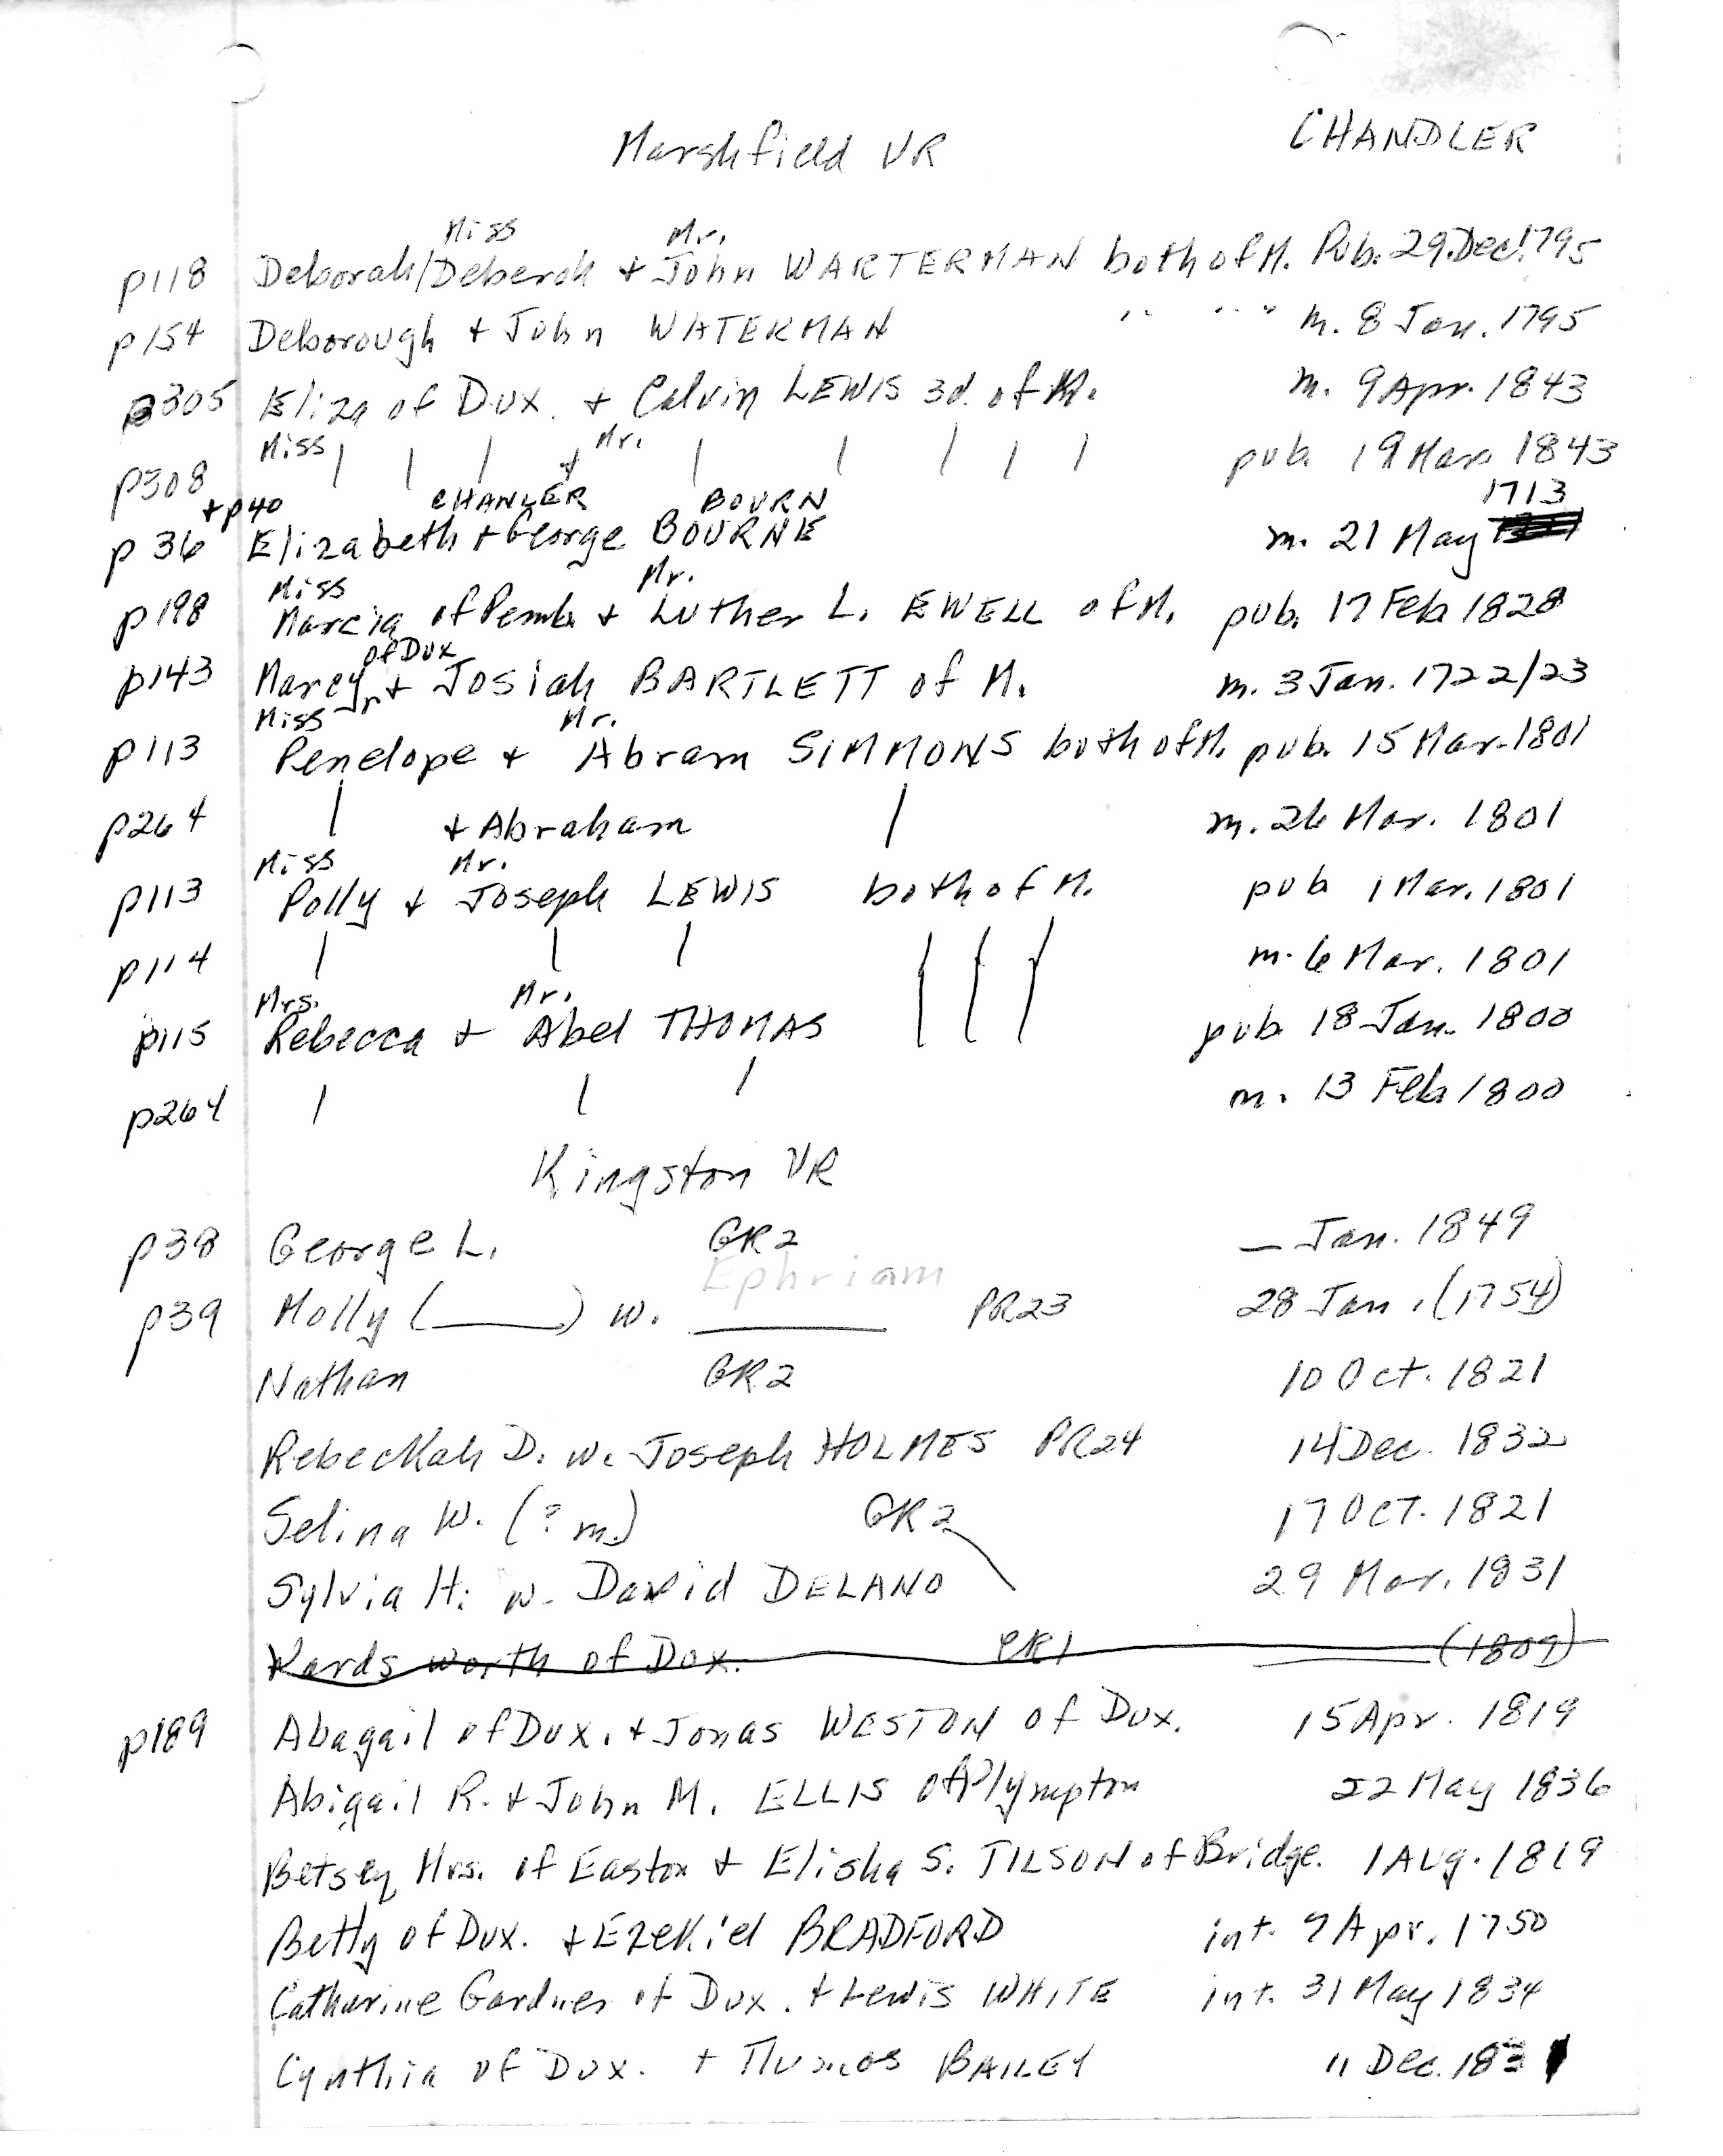 Marshfield VR CHANDLER
Miss Mr.
p118 Deborah/Deberoh + John WARTERMAN both of M. Pub. 29.Dec.1795
p154 Deborough + John WATERMAN " " " " m. 8 Jan. 1795
p305 Eliza of Dux. + Calvin LEWIS 3d. of M. m. 9 Apr. 1843
Miss Mr.
p308 | | | + | | | | | pub. 19 Mar. 1843
+p40 CHANLER BOURN 1713
p36 Elizabeth + George BOURNE m. 21 May
Miss Mr.
p198 Marcia of Pemb. + Luther L. EWELL of M. pub. 17 Feb. 1828
of Dux
p143 Marcy Jr. + Josiah BARTLETT of M. m. 3 Jan. 1722/23
Miss Mr.
p113 Penelope + Abram SIMMONS both of M. pub. 15 Mar. 1801
p264 | + Abraham | m. 26 Mar. 1801
Miss Mr.
p113 Polly + Joseph LEWIS both of M. pub 1 Mar. 1801
p114 | | | | | | m. 6 Mar. 1801
Mrs. Mr.
p115 Rebecca + Abel THOMAS | | | pub. 18 Jan. 1800
p264 | | | m. 13 Feb. 1800
Kingston VR
p38 George L. GR2 — Jan. 1849
Ephriam
p39 Molly (____) w. ____ PR23 28 Jan. (1754)
Nathan GR2 10 Oct. 1821
Rebeckah D. w. Joseph HOLMES PR24 14 Dec. 1832
Selina W. (? m.) GR2 17 OCT. 1821
Sylvia H. w. David DELANO 29 Mar. 1831
Wardsworth of Dux. PR1 ____ (1809)
p189 Abagail of Dux. + Jonas WESTON of Dux. 15 Apr. 1819
Abigail R. + John M. ELLIS of Plympton 22 May 1836
Betsey Mrs. of Easton + Elisha S. TILSON of Bridge. 1 Aug. 1819
Betty of Dux. + Ezekiel BRADFORD int. 7 Apr. 1750
Catharine Gardner of Dux. + Lewis WHITE int. 31 May 1834
Cynthia of Dux. + Thomas BAILEY 11 Dec. 183